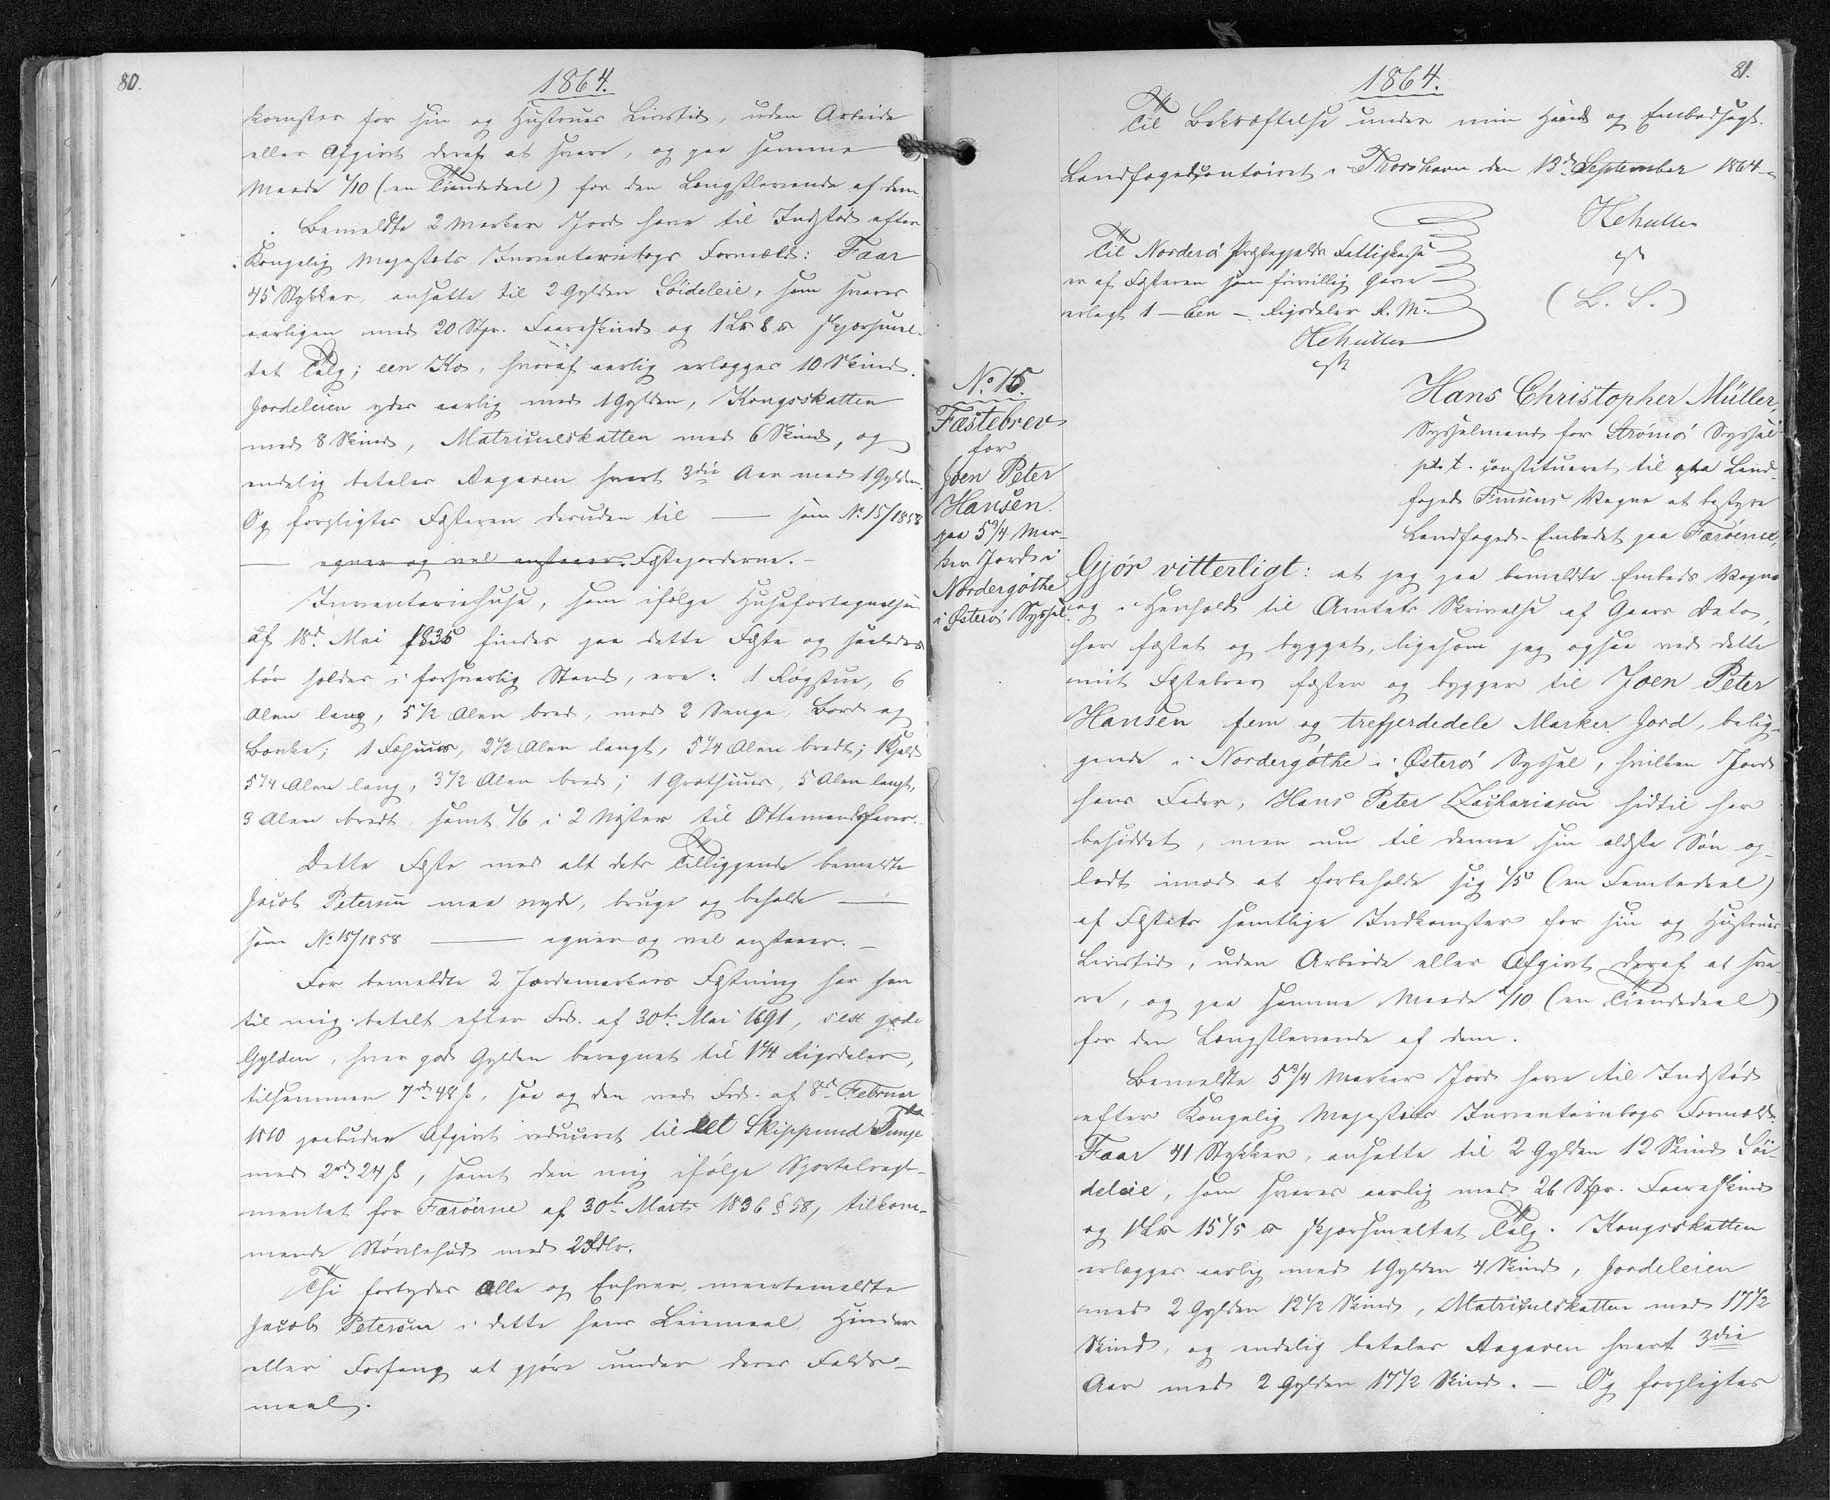 80.
1864.
komster for sin og Hustrues Livstid, uden Arbeide
eller Afgivt deraf at svare, og paa samme
Maade 1/10 (en Tiendedeel) for den Længstlevende af dem.
Bemeldte 2 Marker Jord have til Indstød efter
Kongelig Majestets Inventariebogs Formeld: Faar
45 Stykker, ansatte til 2 Gylden Söideleie, som svares
aarligen med 20 Stpr. Faareskind og 1 L℔ 8 ℔ skjærsmel-
tet Talg; een Ko, hvoraf aarlig erlægges 10 Skind.
Jordeleien ydes aarlig med 1 Gylden, Kongsskatten
med 8 Skind, Matriculskatten med 6 Skind, og
endelig betales Aagaven hvert 3die Aar med 1 Gylden.
Og forpligtes Fæsteren desuden til — som No 15/1858
— egner og vel anstaaer. Fæstejorderne. —
Inventariehuse, som ifølge Husefortegnelsen
af 18d Mai 1835 findes paa dette Fæste og saaledes
bör holdes i forsvarlig Stand, ere: 1 Røgstue, 6
Alen lang, 5 1/2 Alen bred, med 2 Senge, Bord og
Bænke; 1 Fæhuus, 2 1/2 Alen langt, 5 1/4 Alen bredt; 1 Hjald
5 1/4 Alen lang, 3 1/2 Alen bred; 1 Grothuus, 5 Alen langt,
3 Alen bredt, samt 1/6 i 2 Nöster til Ottemandsfarer.
Dette Fæste med alt dets Tilliggende bemeldte
Jacob Petersen maa nyde, bruge og beholde —
som No 15/1858 — egner og vel anstaaer. —
For bemeldte 2 Jordemarkers Fæstning har han
til mig betalt efter Frd. af 30te Mai 1691, sex gode
Gylden, hver god Gylden beregnet til 1 1/4 Rigsdaler,
tilsammen 7rd 48 ß, saa og den ved Frd. af 8d Februar
1810 paabudne Afgivt reduceret til eet Skippund Tunge
med 2rd 24 ß, samt den mig ifølge Sportelregle-
mentet for Færöerne af 30te Marts 1836 § 58, tilkom-
mende Støvlehud med 2 Rdlr.
Thi forbydes Alle og Enhver meerbemeldte
Jacob Petersen i dette hans Leiemaal Hinder
eller Forfang at gjöre under deres Falds-
maal.
81.
1864.
Til Bekræftelse under min Haand og Embedssegl.
Landfogedcontoiret i Thorshavn den 13d September 1864
HCMüller
cst
(L. S.)
Til Norderö Præstegjelds Fattigkasse
er af Fæsteren som frivillig Gave
erlagt 1 — Een — Rigsdaler R. M.
HCMüller
cst
No 15.
Fæstebrev
for
Joen Peter
Hansen
paa 5 3/4 Mar-
ker Jord i
Nordergöthe
i Österö Syssel.
Hans Christopher Müller,
Sysselmand for Strömö Syssel
p. t. constitueret til paa Land-
foged Finsens Vegne at bestyre
Landfoged-Embedet paa Færöerne,
Gjör vitterligt: at jeg paa bemeldte Embeds Vegne
og i Henhold til Amtets Skrivelse af Gaars Dato,
har fæstet og bygget, ligesom jeg ogsaa ved dette
mit Fæstebrev fæster og bygger til Joen Peter
Hansen fem og trefjerdedele Marker Jord, belig-
gende i Nordergöthe i Österö Syssel, hvilken Jord
hans Fader, Hans Peter Zachariasen hidtil har
besiddet, men nu til denne sin ældste Sön op-
ladt imod at forbeholde sig 1/5 (en Femtedeel)
af Fæstets samtlige Indkomster for sin og Hustrues
Livstid, uden Arbeide eller Afgivt deraf at sva-
re, og paa samme Maade 1/10 (en Tiendedeel)
for den Længstlevende af dem.
Bemeldte 5 3/4 Marker Jord have til Indstød
efter Kongelig Majestets Inventariebogs Formeld
Faar 41 Stykker, ansatte til 2 Gylden 12 Skind Söi-
deleie, som svares aarlig med 26 Stpr. Faareskind
og 1 L℔ 15 1/5 ℔ skjærsmeltet Talg. Kongsskatten
erlægges aarlig med 1 Gylden 4 Skind, Jordeleien
med 2 Gylden 12 1/2 Skind, Matriculskatten med 17 1/2
Skind, og endelig betales Aagaven hvert 3die
Aar med 2 Gylden 17 1/2 Skind. — Og forpligtes